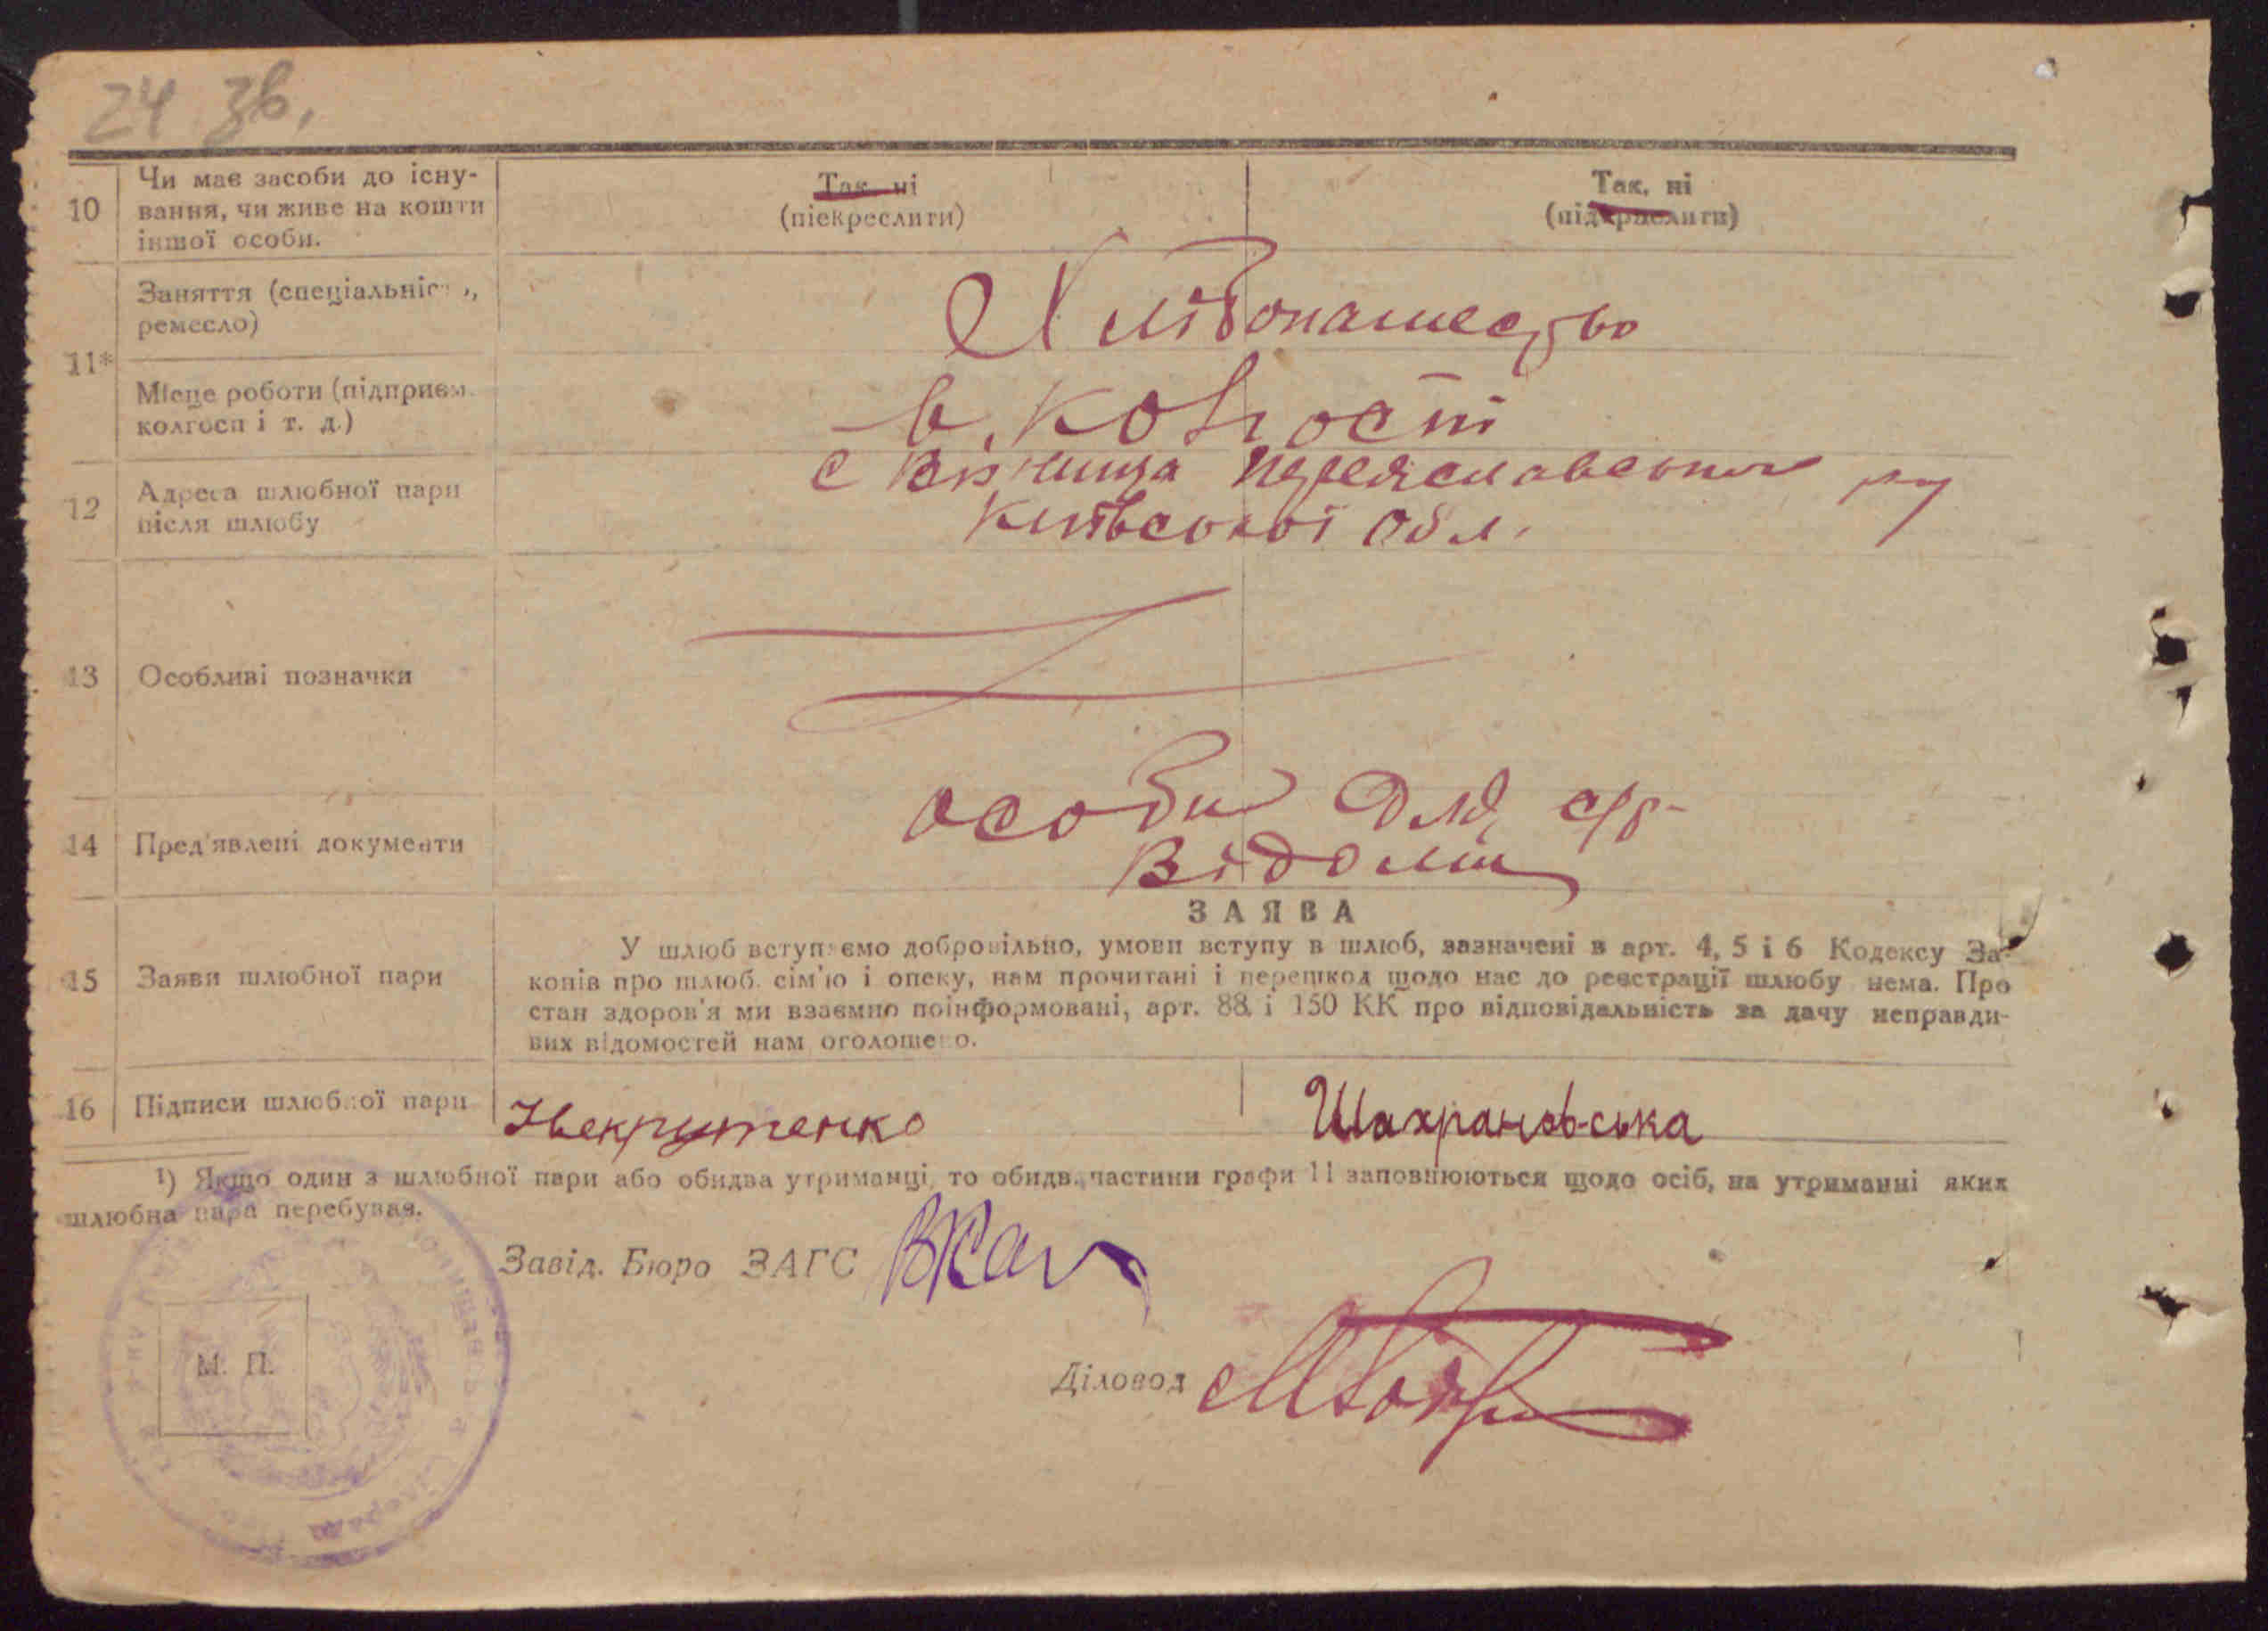 24 зв.
10
Чи має засоби до існу-
вання, чи живе на кошти
іншої особи.
Так ні
(піекреслити)
Так, ні
(підкреслити)
11*
Заняття (спеціальніс ,,
ремесло)
Хлібопашество
Місце роботи (підприєм.
колгосп і т. д.)
в. колгоспі
12
Адреса шлюбної пари
після шлюбу
с Віннища Переяславського р-ну
Київської обл.
13
Особливі позначки
14
Пред'явлені документи
особи для с/р-
відомі
ЗАЯВА
15
Заяви шлюбної пари
У шлюб вступаємо добровільно, умови вступу в шлюб, зазначені в арт. 4, 5 і 6 Кодексу За-
конів про шлюб. сім'ю і опеку, нам прочитані і перешкод щодо нас до реєстрації шлюбу нема. Про
стан здоров'я ми взаємно поінформовані, арт. 88 і 150 КК про відповідальність за дачу неправди-
вих відомостей нам оголошено.
16
Підписи шлюбної пари
Некрутенко
Шахрановська
¹) Якщо один з шлюбної пари або обидва утриманці, то обидв. частини графи 11 заповнюються щодо осіб, на утриманні яких
шлюбна пара перебуває.
Завід. Бюро ЗАГС
М. П.
Діловод